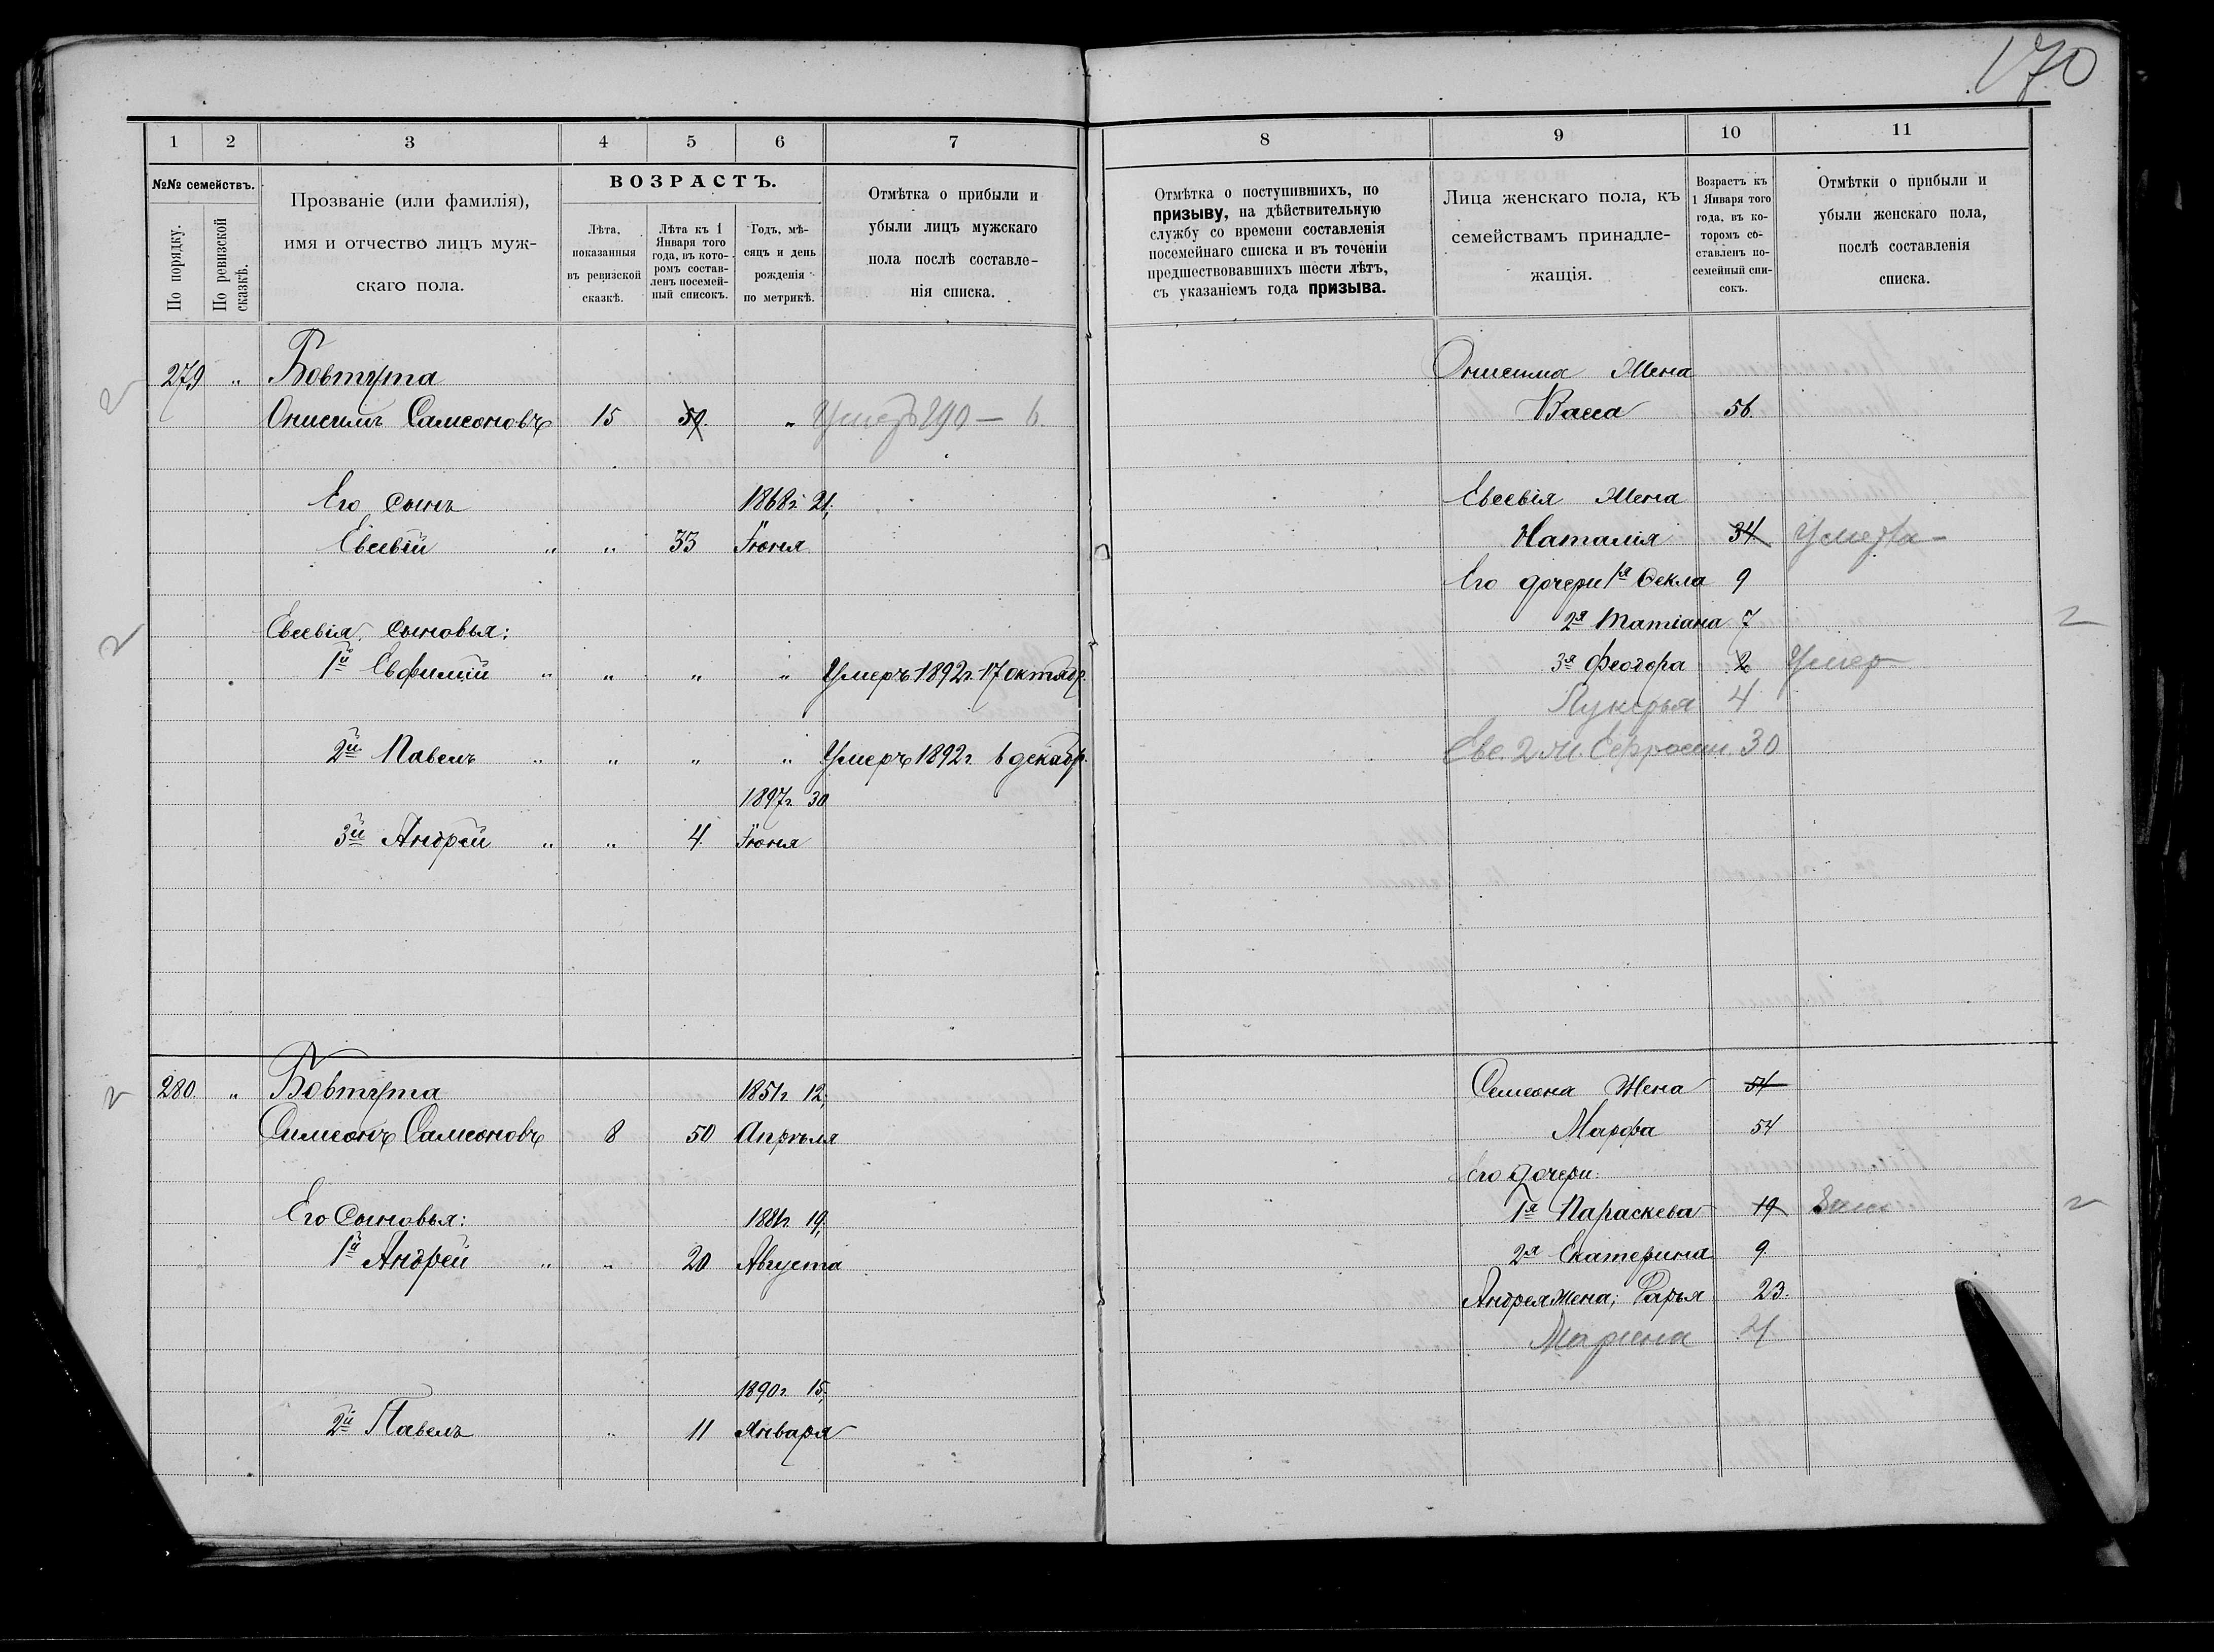 170
1 2 3 4 5 6 7
№№ семействъ.
По порядку.
По ревизской сказкѣ.
Прозваніе (или фамилія),
имя и отчество лицъ муж-
скаго пола.
ВОЗРАСТЪ.
Лѣта,
показанныя
въ ревизской
сказкѣ.
Лѣта къ 1
Января того
года, въ кото-
ромъ состав-
ленъ посемей-
ный списокъ.
Годъ, мѣ-
сяцъ и день
рожденія
по метрикѣ.
Отмѣтка о прибыли и
убыли лицъ мужскаго
пола послѣ составле-
нія списка.
279 „ Бовтута
Онисимъ Самсоновъ 15 59. „ Умеръ
Его сынъ 1868г. 21,
Евсевій „ „ 33 Іюня
Евсевія сыновья:
1й Евфимій „ „ „ „ Умеръ 1892г. 17 октябр.
2й Павелъ „ „ „ „ Умеръ 1892г. 6 декабр.
1897г. 30
3й Андрей „ „ 4. Іюня
280. „ Бовтута 1851г. 12,
Симеонъ Самсоновъ 8 50 Апрѣля
Его Сыновья: 1881г. 19,
1й Андрей „ „ 20 Августа
1890г. 15,
2й Павелъ „ 11 Января
8 9 10 11
Отмѣтка о поступившихъ, по
призыву, на дѣйствительную
службу со времени составленія
посемейнаго списка и въ теченіи
предшествовавшихъ шести лѣтъ,
съ указаніемъ года призыва.
Лица женскаго пола, къ
семействамъ принадле-
жащія.
Возрастъ къ
1 Января того
года, въ ко-
торомъ со-
ставленъ по-
семейный спи-
сокъ.
Отмѣтки о прибыли и
убыли женскаго пола,
послѣ составленія
списка.
Онисима Жена
Васса 56.
Евсевія Жена
Наталія 34 Умерла
Его дочери 1я Ѳекла 9
2я Татіана 7
3я Феодора 2 Умер
Лукерья 4
Евс. 2 ж. Ефросин 30
Семеона Жена 54
Марфа 54
Его дочери:
1я Параскева 19
2я Екатерина 9.
Андрея жена; Дарья 23.
Марина